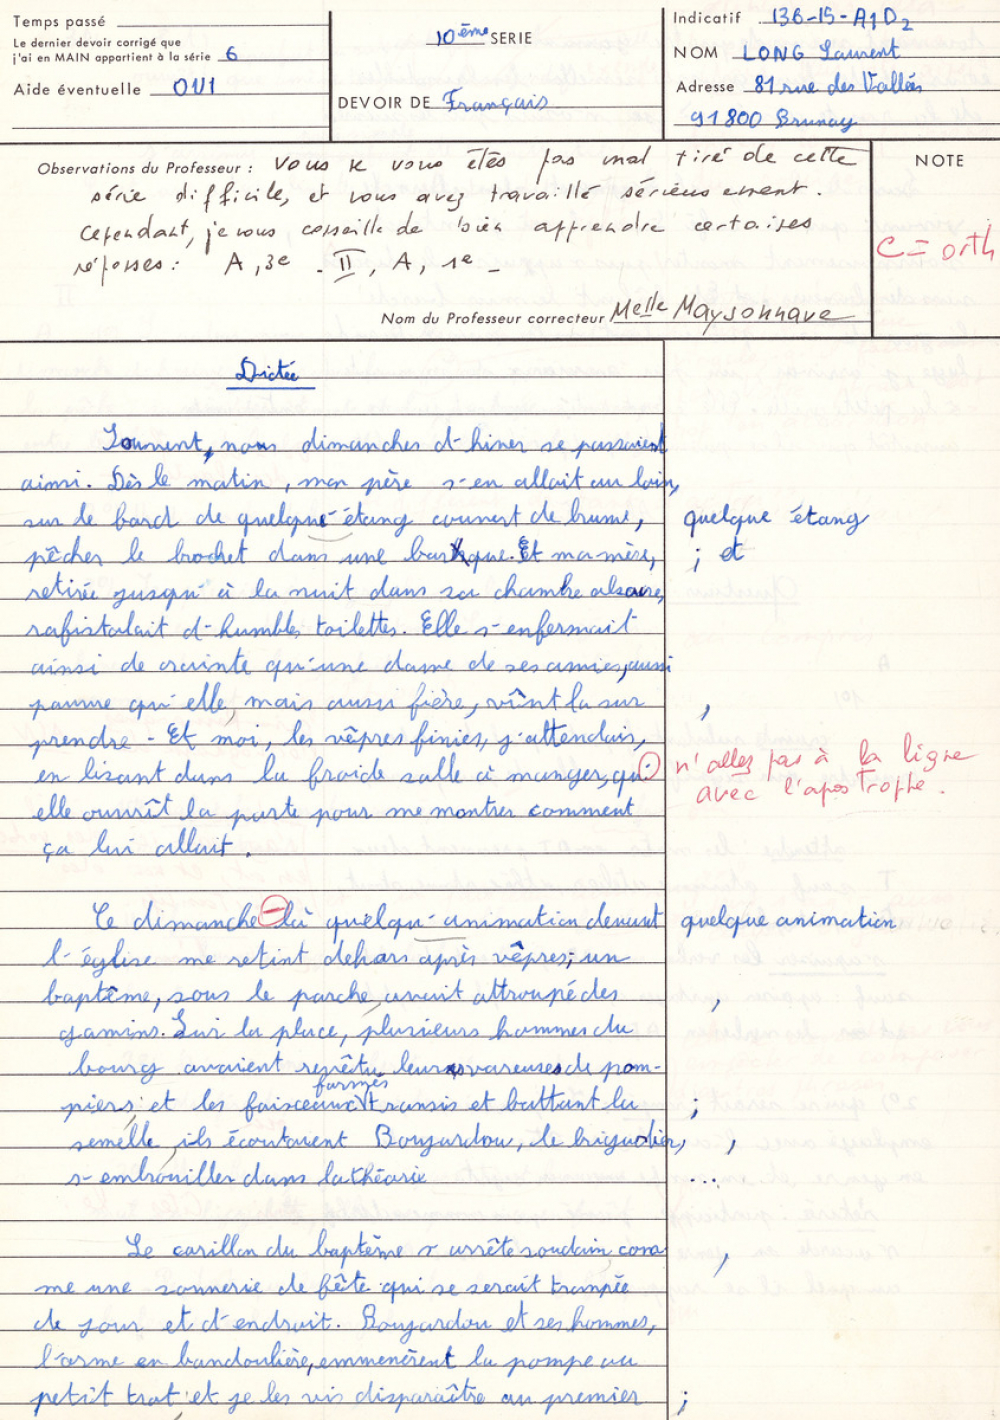 Temps passé
Le dernier devoir corrigé que
j'ai en MAIN appartient à la série 6
Aide éventuelle OUI
10ème SERIE
DEVOIR DE Français
Indicatif 136-15-A1D2
NOM LONG Laurent
Adresse 81 rue des Vallées
91800 Brunoy
Observations du Professeur : Vous ne vous êtes pas mal tiré de cette
série difficile, et vous avez travaillé sérieusement.
Cependant, je vous conseille de bien apprendre certaines
réponses : A, 3e - II, A, 1e -
Nom du Professeur correcteur Melle Maysonnave
NOTE
C = orth
Dictée
Souvent, nous dimanches d'hiver se passaient
ainsi. Dès le matin, mon père s'en allait au loin,
sur le bord de quelqu'étang couvert de brume, quelque étang
pêcher le brochet dans une barque. Et ma mère, ; et
retirée jusqu'à la nuit dans sa chambre obscure,
rafistolait d'humbles toilettes. Elle s'enfermait
ainsi de crainte qu'une dame de ses amies, aussi
pauvre qu'elle, mais aussi fière, vînt la sur ,
prendre. Et moi, les vêpres finies, j'attendais,
en lisant dans la froide salle à manger, qu' n'allez pas à la ligne
avec l'apostrophe.
elle ouvrît la porte pour me montrer comment
ça lui allait.
Ce dimanche-là quelqu'animation devant quelque animation
l'église me retint dehors après vêpres; un
baptême, sous le porche, avait attroupé des ,
gamins. Sur la place, plusieurs hommes du
bourg avaient revêtu leurs vareuses de pom-
formés
piers; et les faisceaux transis et battant la ;
semelle, ils écoutaient Boujardon, le brigadier, ,
s'embrouiller dans la théorie ...
Le carillon du baptême s'arrêta soudain com ,
me une sonnerie de fête qui se serait trompée
de jour et d'endroit. Boujardon et ses hommes,
l'arme en bandoulière, emmenèrent la pompe au
petit trot; et je les vis disparaître au premier ;